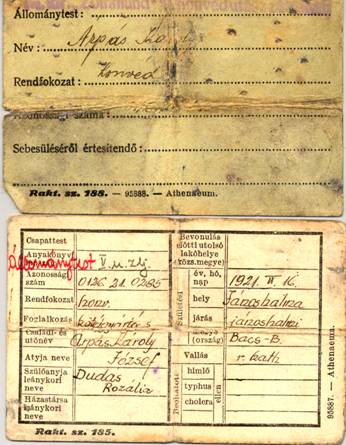 Állománytest:
Név: Árpás Károly
Rendfokozat: Honvéd
Azonossági száma:
Sebesüléséről értesítendő:
Rakt. sz. 188. — 95888. — Athenaeum.
Csapattest
Anyakönyvi
Állománytest V.
Azonossági szám 0126.21.0285
Rendfokozat honv.
Foglalkozás
Családi- és utónév Árpás Károly
Atyja neve József
Szülőanyja leánykori neve Dudás Rozália
Házastársa leánykori neve
Rakt. sz. 185.
Bevonulás előtti utolsó lakóhelye (közs. megye)
Születési
év, hó, nap 1921. 16
hely Jánoshalma
járás jánoshalmi
megye (ország) Bács-B.
Vallás r. kath
Beoltatott
himlő
typhus
cholera
ellen
95887. — Athenaeum.